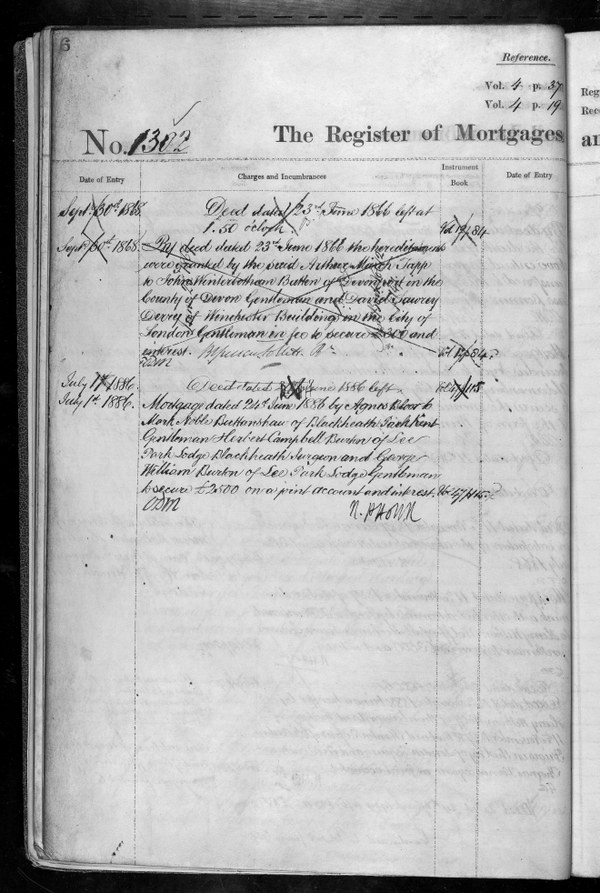 6
Reference.
Vol. 4 p. 37
Vol. 4 p. 19
No. 1302 The Register of Mortgages
Reg
Rece
an
Date of Entry Charges and Incumbrances Instrument Book Date of Entry
Sept. 30th 1868 Deed dated 23rd June 1866 left at
1.50 o'clock Vol 12/54
Sept. 30th 1868. By deed dated 23rd June 1866 the hereditaments
were granted by the said Arthur March Tapp
to John Winterbotham Batten of Devonport in the
County of Devon Gentleman and David Sawrey
Derry of Winchester Buildings in the City of
London Gentleman in fee to secure £300 and
interest. Vol 12/54
July 1st 1886. Deed dated June 1886 left
July 1st 1886. Mortgage dated 24th June 1886 by Agnes Bloor to
Mark Noble Buttanshaw of Blackheath Park Kent
Gentleman Herbert Campbell Burton of Lee
Park Lodge Blackheath Surgeon and George
William Burton of Lee Park Lodge Gentleman
to secure £2500 on a joint account and interest.